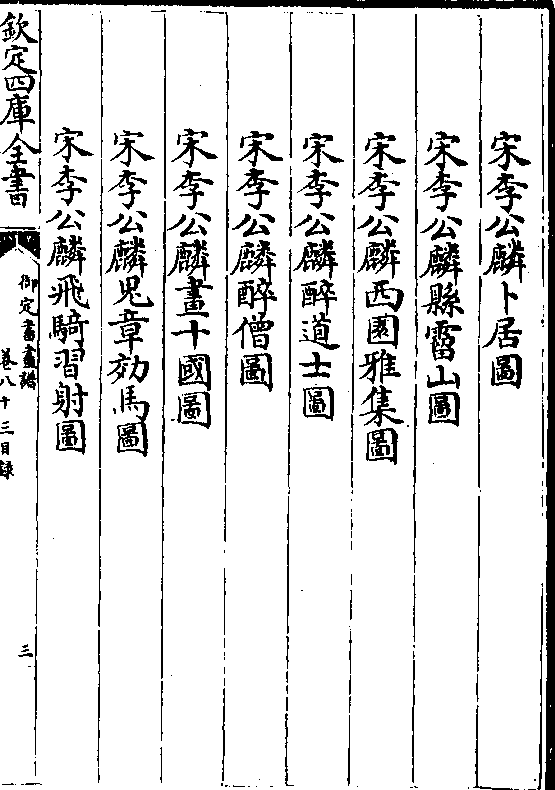 宋李公麟卜居圖
宋李公麟縣霤山圖
宋李公麟西園雅集圖
宋李公麟醉道士圖
宋李公麟醉僧圖
宋李公麟畫十國圖
宋李公麟兒章効馬圖
宋李公麟飛騎習射圖
欽定四庫全書
御定書畫譜
卷八十三目録
三